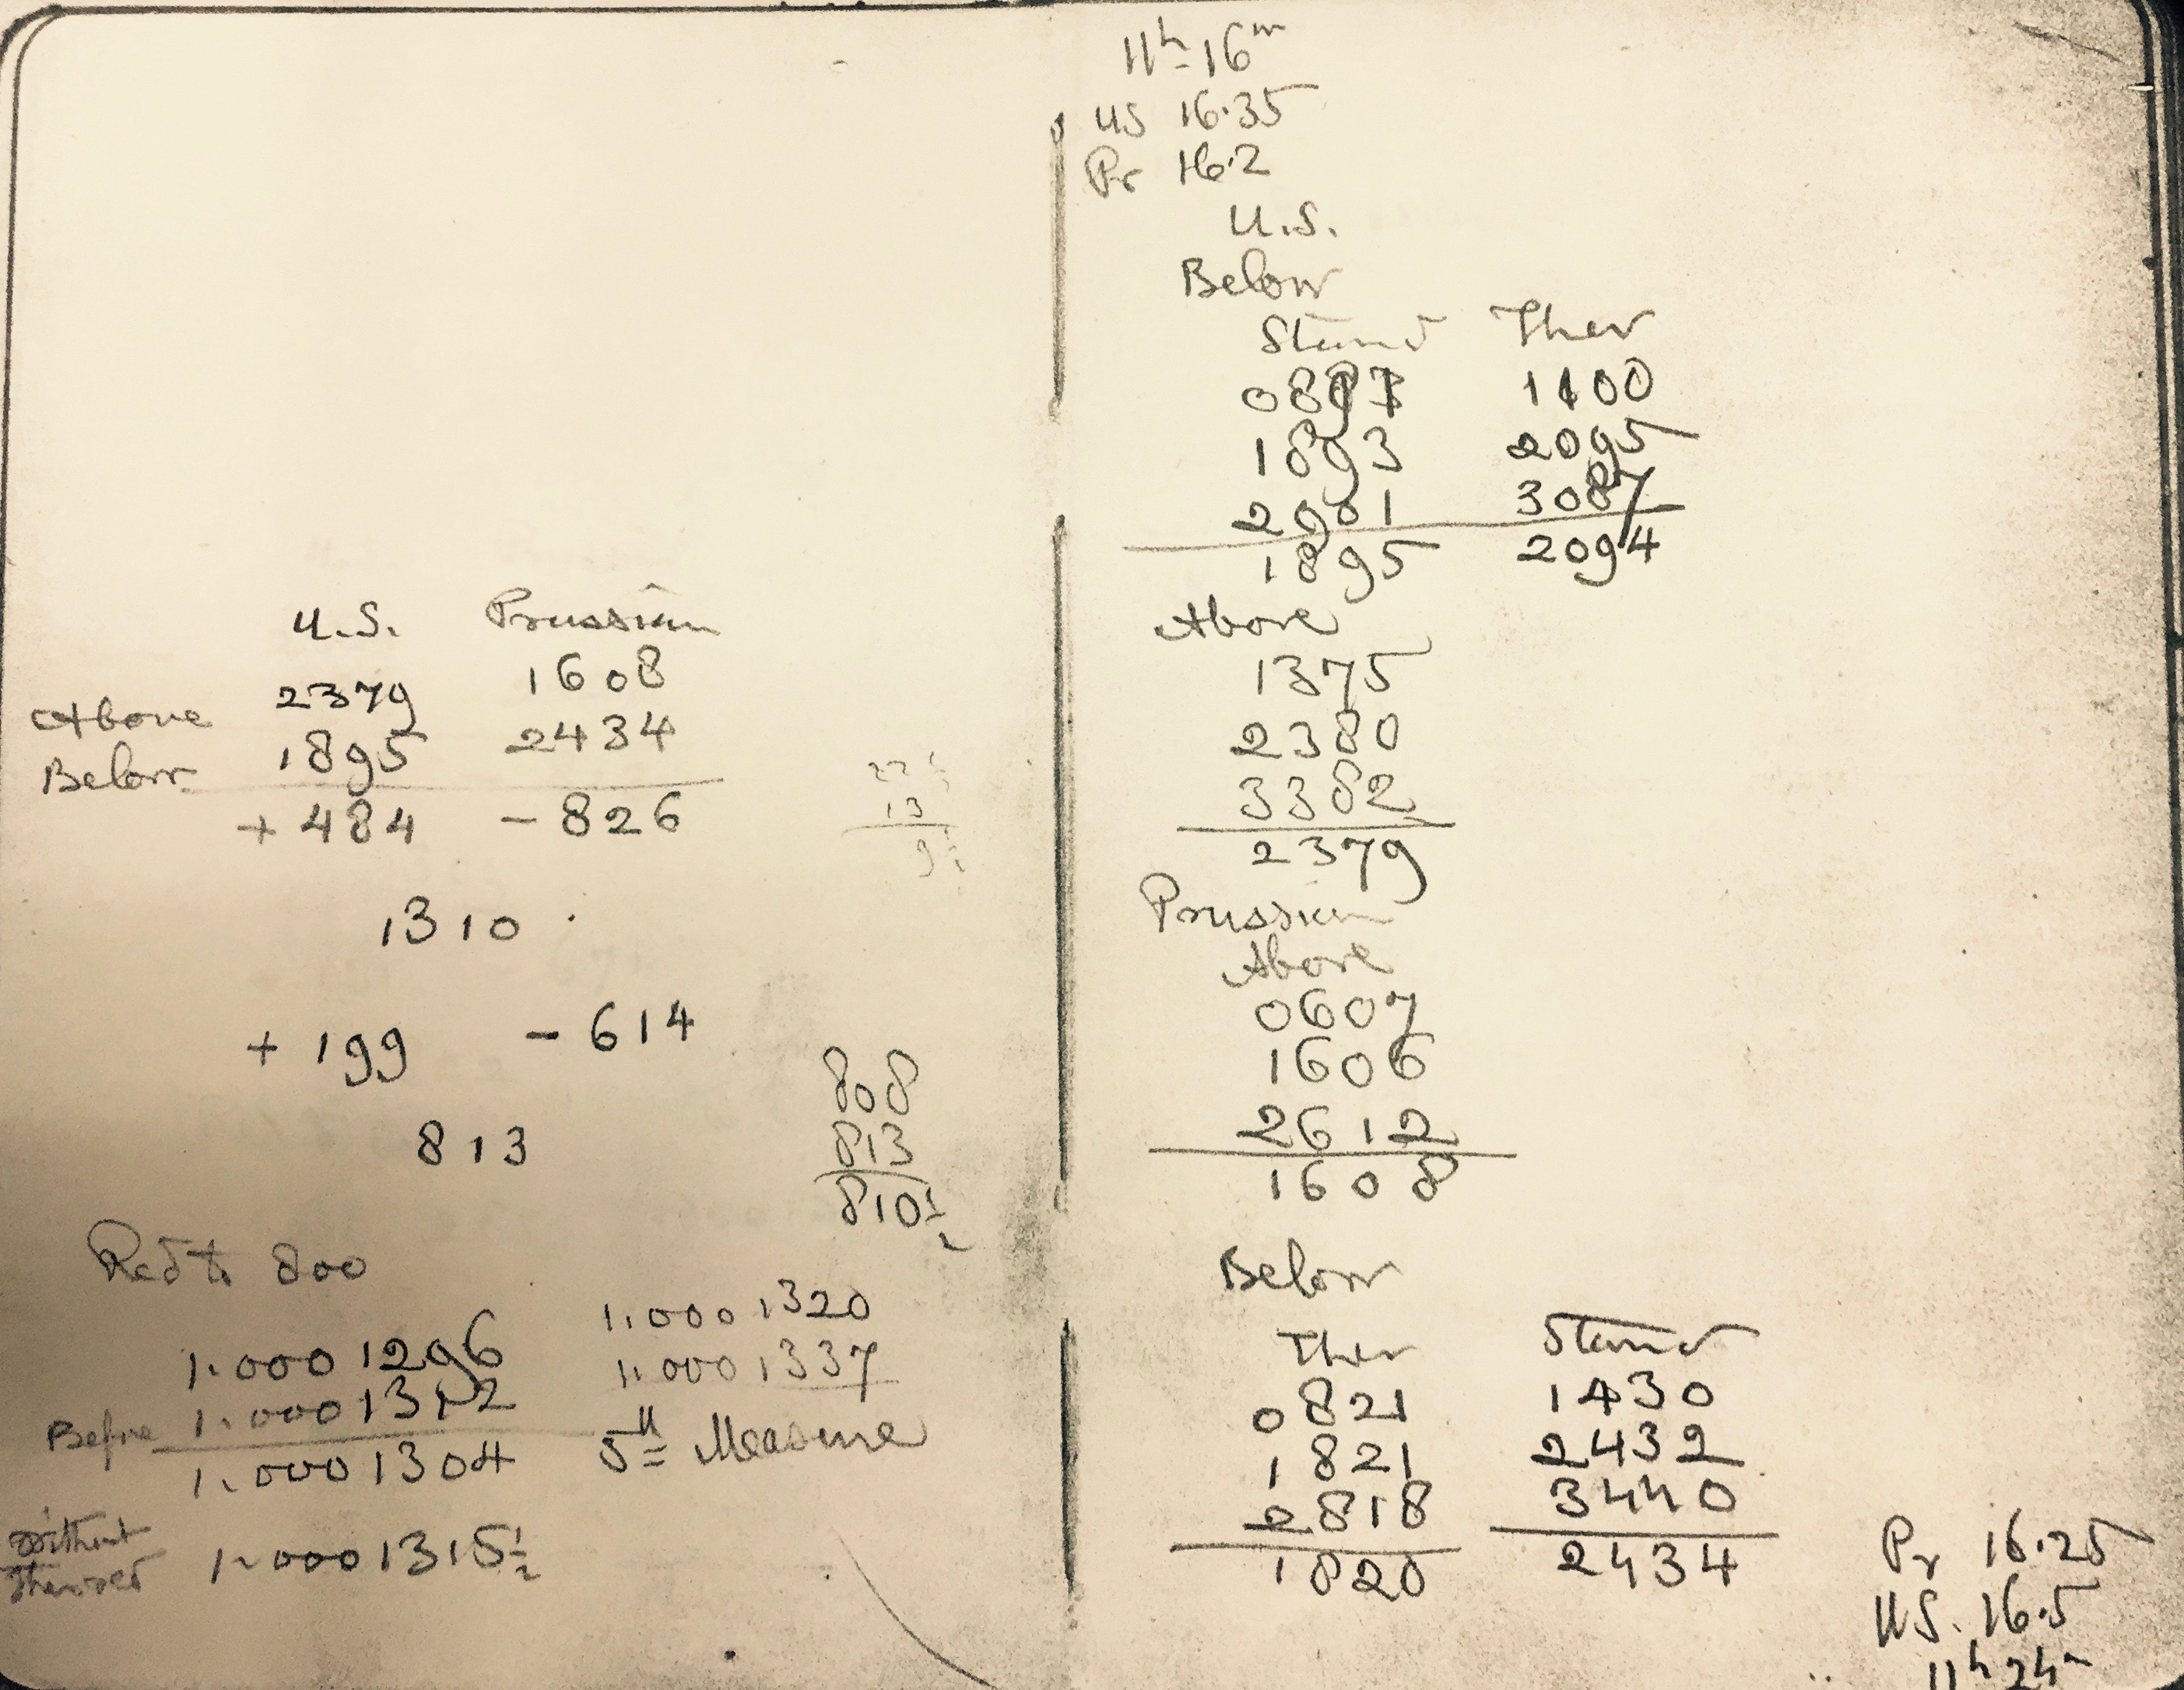 U.S. Prussian
Above 2379 1608
Below 1895 2434
+ 484 - 826
13
9
1310
+ 199 - 614
813
808
813
810½
Red to 800
1.0001296 1.0001320
Before 1.0001312 1.0001337
1.0001304 5th Measure
Without
Ther red 1.0001315½
11h 16m
US 16.35
Pr 16.2
U.S.
Below
Stand Ther
1100
1893 2095
2901 3087
1895 2094
Above
1375
2380
3382
2379
Prussian
Above
0607
1606
2612
1608
Below
Ther Stand
0821 1430
1821 2432
2818 3440
1820 2434
Pr 16.25
US. 16.5
11h 24m